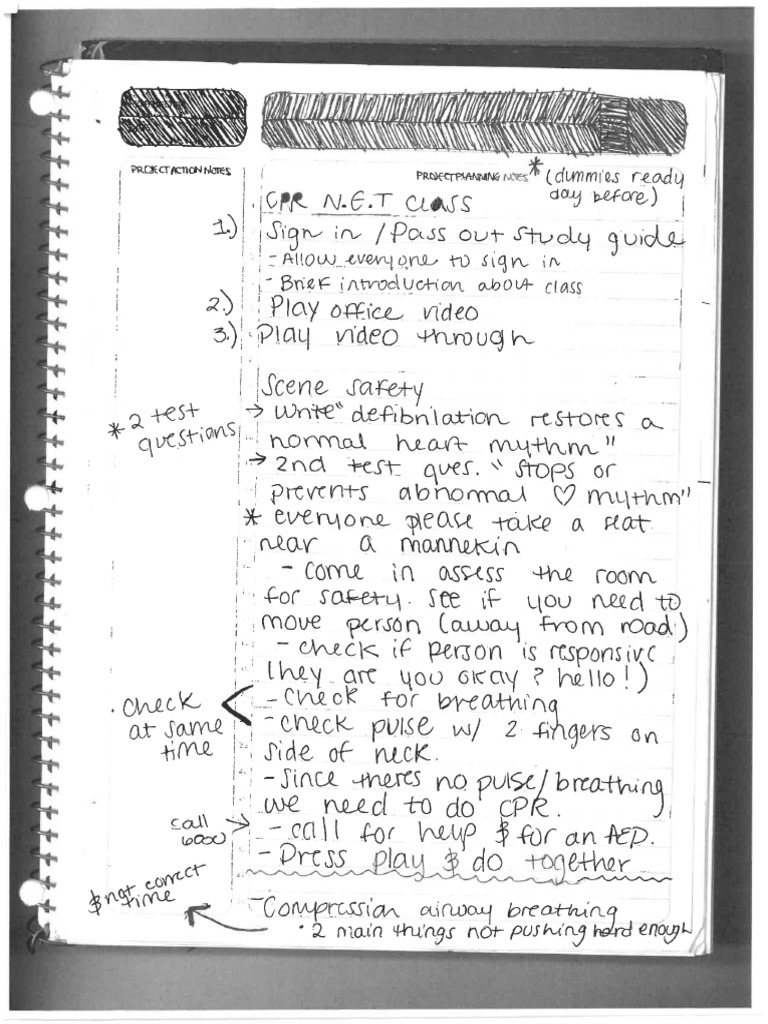 PROJECT ACTION NOTES
PROJECT PLANNING NOTES * (dummies ready
day before)
CPR N.E.T class
1.) Sign in / Pass out study guide
- Allow everyone to sign in
- Brief introduction about class
2.) Play office video
3.) Play video through
Scene safety
* 2 test
questions
→ Write "defibrilation restores a
normal heart rhythm"
→ 2nd test ques. "stops or
prevents abnormal ♡ rhythm"
* everyone please take a seat
near a mannekin
- come in assess the room
for safety. See if you need to
move person (away from road)
- check if person is responsive
(hey are you okay? hello!)
· check
at same
time
- Check for breathing
- check pulse w/ 2 fingers on
side of neck.
- Since theres no pulse/breathing
we need to do CPR.
call
6000
→ - call for help & for an AED.
- Press play & do together
- Compression airway breathing
· 2 main things not pushing hard enough
& not correct
time